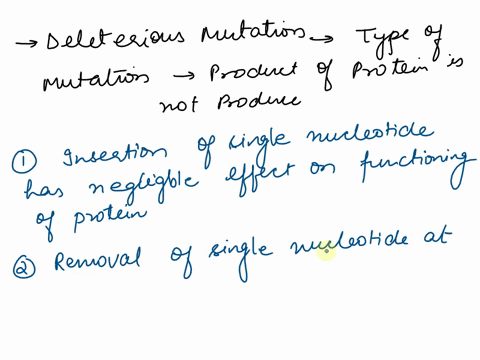 → Deleterious Mutation → Type of
Mutation → Product of Protein is
not Produce
① Insertion of single nucleotide
has negligble effect on functioning
of protein
② Removal of single nucleotide at